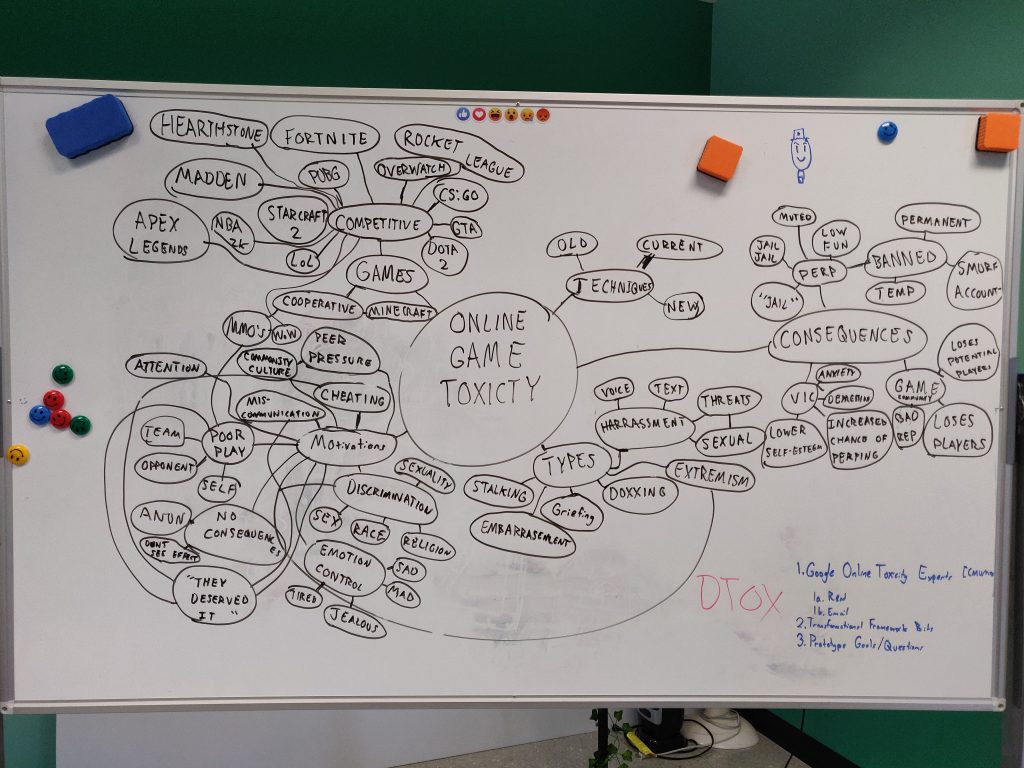 HEARTHSTONE
FORTNITE
ROCKET
LEAGUE
MADDEN
PUBG
OVERWATCH
CS:GO
APEX
LEGENDS
NBA
2K
STARCRAFT
2
COMPETITIVE
GTA
LoL
DOTA
2
GAMES
COOPERATIVE
MINECRAFT
MMO'S
WoW
ONLINE
GAME
TOXICTY
OLD
CURRENT
TECHNIQUES
NEW
MUTED
LOW
FUN
PERMANENT
JAIL
JAIL
PERP
BANNED
"JAIL"
TEMP
SMURF
ACCOUNT
CONSEQUENCES
LOSES
POTENTIAL
PLAYERS
ANXIETY
VIC
GAME
COMMUNITY
LOWER
SELF-ESTEEM
INCREASED
CHANCE OF
PERPING
BAD
REP
LOSES
PLAYERS
PEER
PRESSURE
COMMUNITY
CULTURE
ATTENTION
CHEATING
MIS-
COMMUNICATION
MOTIVATIONS
TEAM
POOR
PLAY
OPPONENT
SELF
ANON
NO
CONSEQUENCES
DON'T
SEE EFFECT
"THEY
DESERVED
IT"
SEXUALITY
DISCRIMINATION
SEX
RACE
RELIGION
EMOTION
CONTROL
SAD
MAD
TIRED
JEALOUS
VOICE
TEXT
THREATS
HARRASSMENT
SEXUAL
TYPES
EXTREMISM
STALKING
DOXXING
Griefing
EMBARRASEMENT
DTOX
1. Google Online Toxicity Experts
1a. Read
1b. Email
2. Transformational Framework Bits
3. Prototype Goals/Questions